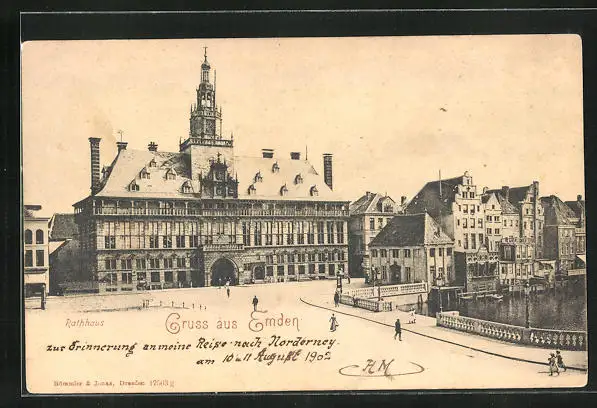 Rathhaus
Gruss aus Emden
zur Erinnerung an meine Reise nach Norderney.
am 10 u 11 August 1902
HM
Römmler & Jonas, Dresden 17503 g